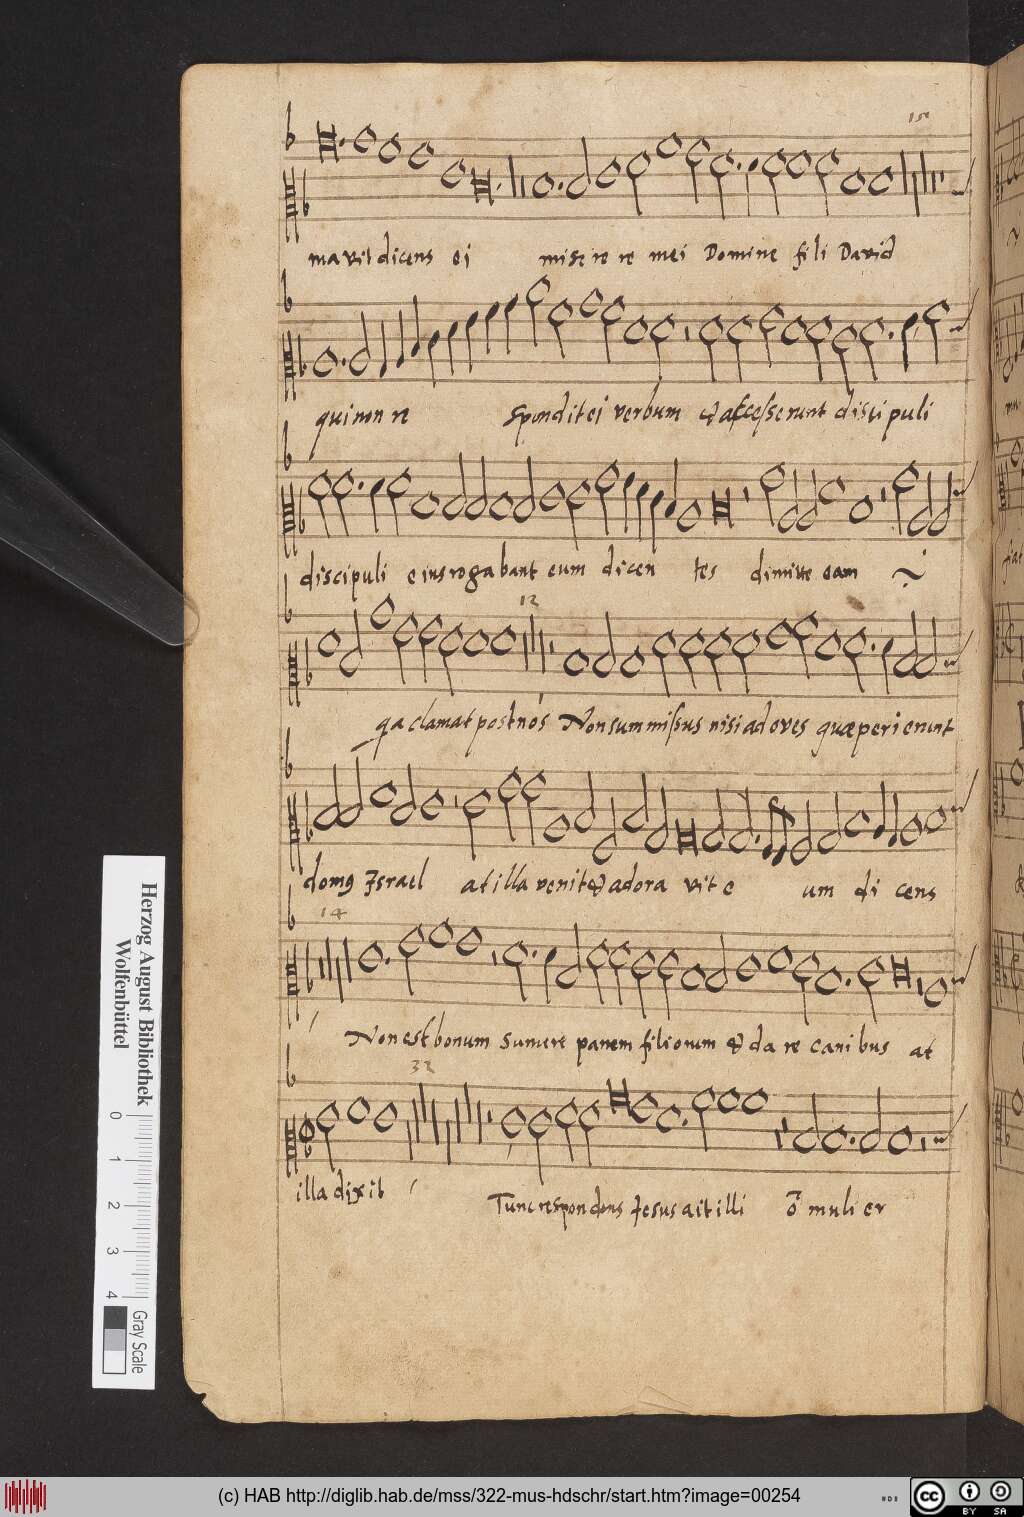 15
mavit dicens ei misere re mei Domine fili David
qui non re spondit ei verbum & accesserunt discipuli
discipuli eum rogabant eum dicen tes dimitte eam
12
qa clamat post nos Non sum missus nisi ad oves quæ perierunt
domg Israel at illa venit & adora vit e um di cens
14
Non est bonum sumere panem filiorum & da re canibus at
32
illa dixit Tunc respondens Jesus ait illi ō mulier
Herzog August Bibliothek
Wolfenbüttel
0 1 2 3 4
Gray Scale
(c) HAB http://diglib.hab.de/mss/322-mus-hdschr/start.htm?image=00254
cc BY SA